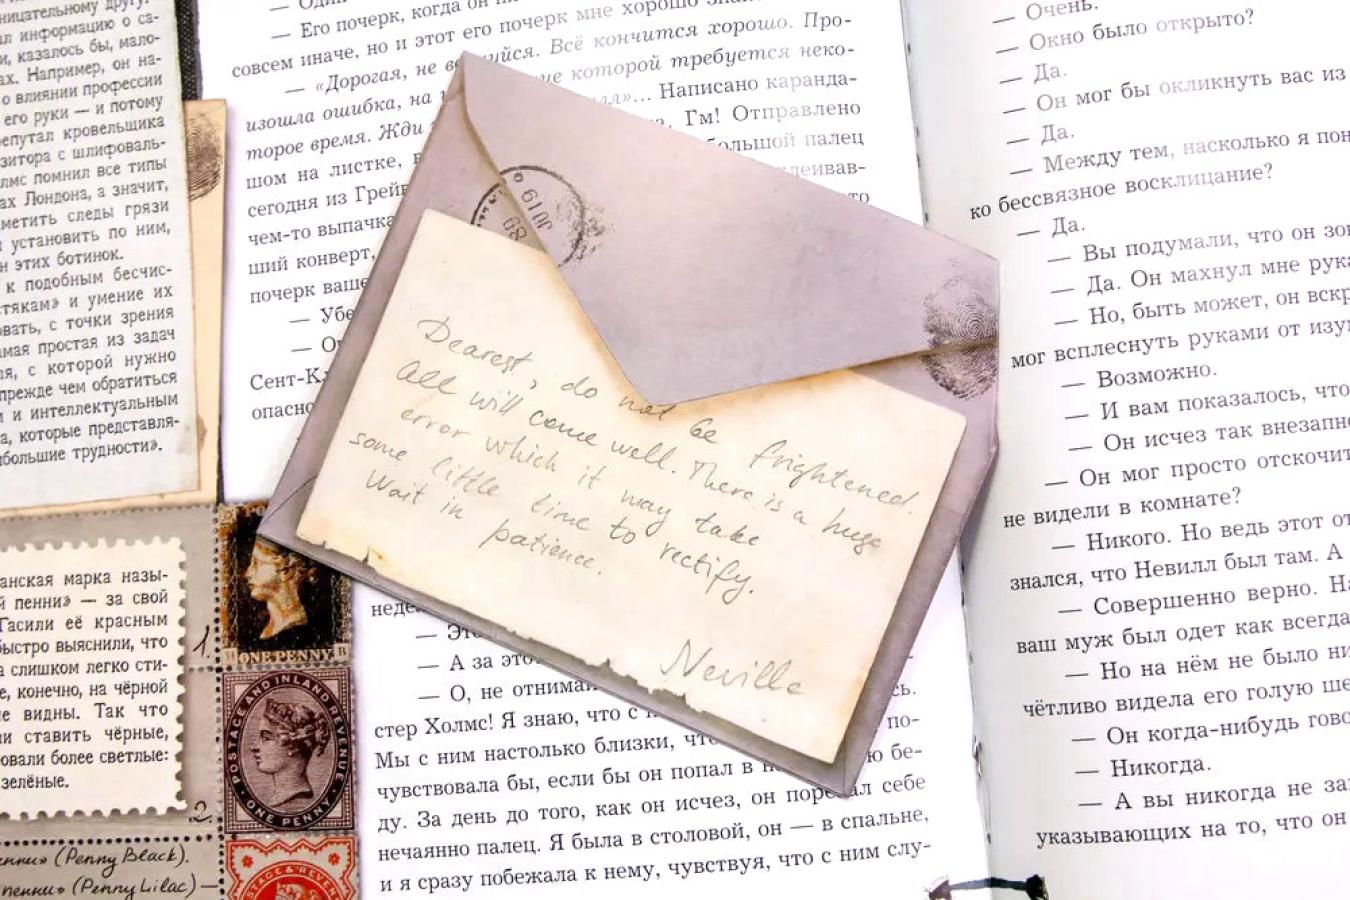 ницательному другу.
ал информацию о са-
и, казалось бы, мало-
ах. Например, он на-
о влиянии профессии
его руки — и потому
репутал кровельщика
зитора с шлифоваль-
лмс помнил все типы
ах Лондона, а значит,
метить следы грязи
и установить по ним,
н этих ботинок.
к подобным бесчис-
стякам» и умение их
овать, с точки зрения
амая простая из задач
ля, с которой нужно
прежде чем обратиться
и и интеллектуальным
а, которые представля-
большие трудности».
анская марка назы-
й пенни» — за свой
Гасили её красным
быстро выяснили, что
а слишком легко сти-
е, конечно, на чёрной
не видны. Так что
ли ставить чёрные,
овали более светлые:
зелёные.
1.
ONE PENNY B
2.
POSTAGE AND INLAND REVENUE
ONE PENNY
енни» (Penny Black).
пенни» (Penny Lilac) —
— Его почерк, когда он
совсем иначе, но и этот его почерк мне хорошо
— «Дорогая, не Всё кончится хорошо. Про-
изошла ошибка, на которой требуется неко-
торое время. Жди Написано каранда-
шом на листке, Гм! Отправлено
сегодня из большой палец
чем-то выпачка
ший конверт,
почерк ваше
— Убе
Сент-Кл
опасно
Dearest, do not be frightened.
All will come well. There is a huge
error which it may take
some little time to rectify.
Wait in patience.
Neville
неде
— Это
— А за это
— О, не отнимай
стер Холмс! Я знаю, что с
Мы с ним настолько близки, что по-
чувствовала бы, если бы он попал в ю бе-
ду. За день до того, как он исчез, он порезал себе
нечаянно палец. Я была в столовой, он — в спальне,
и я сразу побежала к нему, чувствуя, что с ним слу-
— Очень.
— Окно было открыто?
— Да.
— Он мог бы окликнуть вас из
— Да.
— Между тем, насколько я пон
ко бессвязное восклицание?
— Да.
— Вы подумали, что он зов
— Да. Он махнул мне рука
— Но, быть может, он вскр
мог всплеснуть руками от изум
— Возможно.
— И вам показалось, что
— Он исчез так внезапно
— Он мог просто отскочит
не видели в комнате?
— Никого. Но ведь этот от
знался, что Невилл был там. А
— Совершенно верно. На
ваш муж был одет как всегда
— Но на нём не было ни
чётливо видела его голую ше
— Он когда-нибудь гово
— Никогда.
— А вы никогда не за
указывающих на то, что он